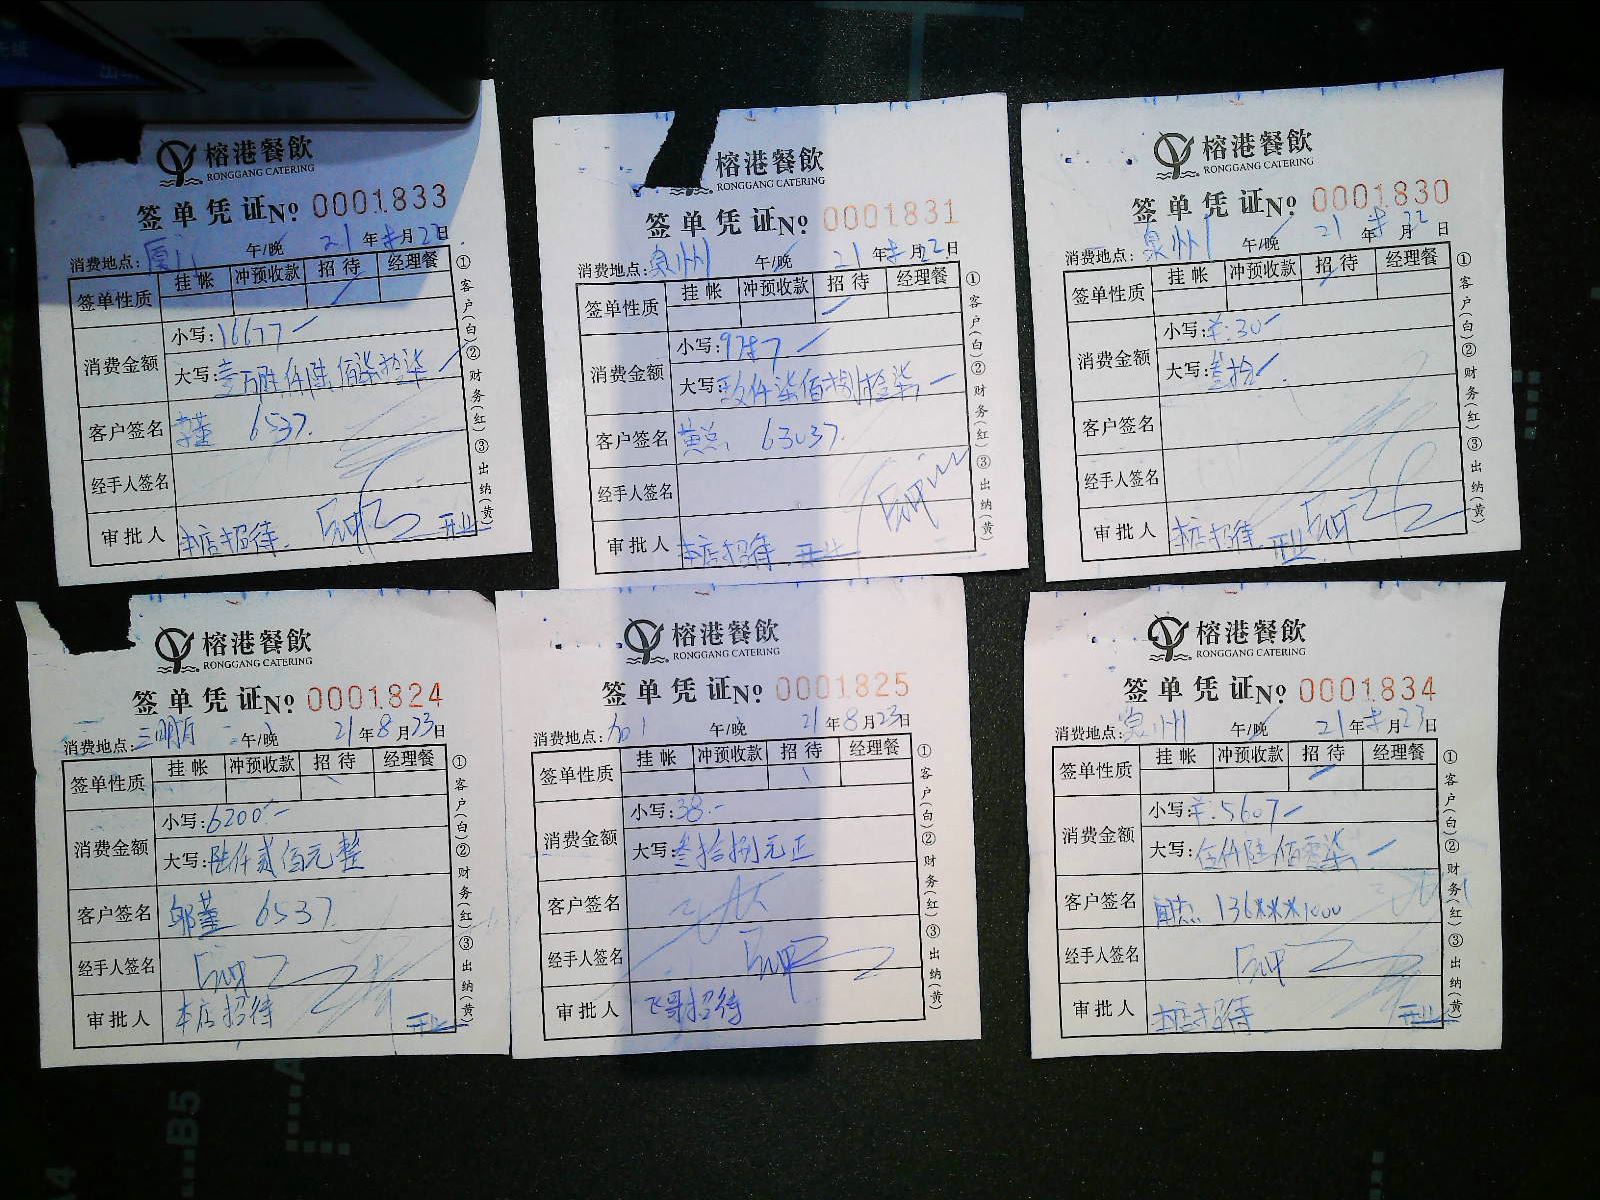 榕港餐飲
RONGGANG CATERING
签单凭证No 0001833
消费地点: 厦门 午/晚 21年8月22日
签单性质 挂帐 冲预收款 招待 经理餐
消费金额 小写:16677
大写:壹万陆仟陆佰柒拾柒
客户签名 李董 6537.
经手人签名
审批人 本店招待 开业
①客户(白)②财务(红)③出纳(黄)
榕港餐飲
RONGGANG CATERING
签单凭证No 0001831
消费地点: 泉州 午/晚 21年8月22日
签单性质 挂帐 冲预收款 招待 经理餐
消费金额 小写:9787
大写:玖仟柒佰捌拾柒
客户签名 黄总 63037.
经手人签名
审批人 本店招待 开业
①客户(白)②财务(红)③出纳(黄)
榕港餐飲
RONGGANG CATERING
签单凭证No 0001830
消费地点: 泉州 午/晚 21年8月22日
签单性质 挂帐 冲预收款 招待 经理餐
消费金额 小写:¥:30
大写:叁拾
客户签名
经手人签名
审批人 本店招待 开业
①客户(白)②财务(红)③出纳(黄)
榕港餐飲
RONGGANG CATERING
签单凭证No 0001824
消费地点: 三明 午/晚 21年8月23日
签单性质 挂帐 冲预收款 招待 经理餐
消费金额 小写:6200
大写:陆仟贰佰元整
客户签名 邬董 6537
经手人签名
审批人 本店招待 开业
①客户(白)②财务(红)③出纳(黄)
榕港餐飲
RONGGANG CATERING
签单凭证No 0001825
消费地点: 加1 午/晚 21年8月23日
签单性质 挂帐 冲预收款 招待 经理餐
消费金额 小写:38
大写:叁拾捌元正
客户签名
经手人签名
审批人 飞哥招待
①客户(白)②财务(红)③出纳(黄)
榕港餐飲
RONGGANG CATERING
签单凭证No 0001834
消费地点: 泉州 午/晚 21年8月23日
签单性质 挂帐 冲预收款 招待 经理餐
消费金额 小写:¥:5607
大写:伍仟陆佰零柒
客户签名 136***1000
经手人签名
审批人 本店招待 开业
①客户(白)②财务(红)③出纳(黄)
B5